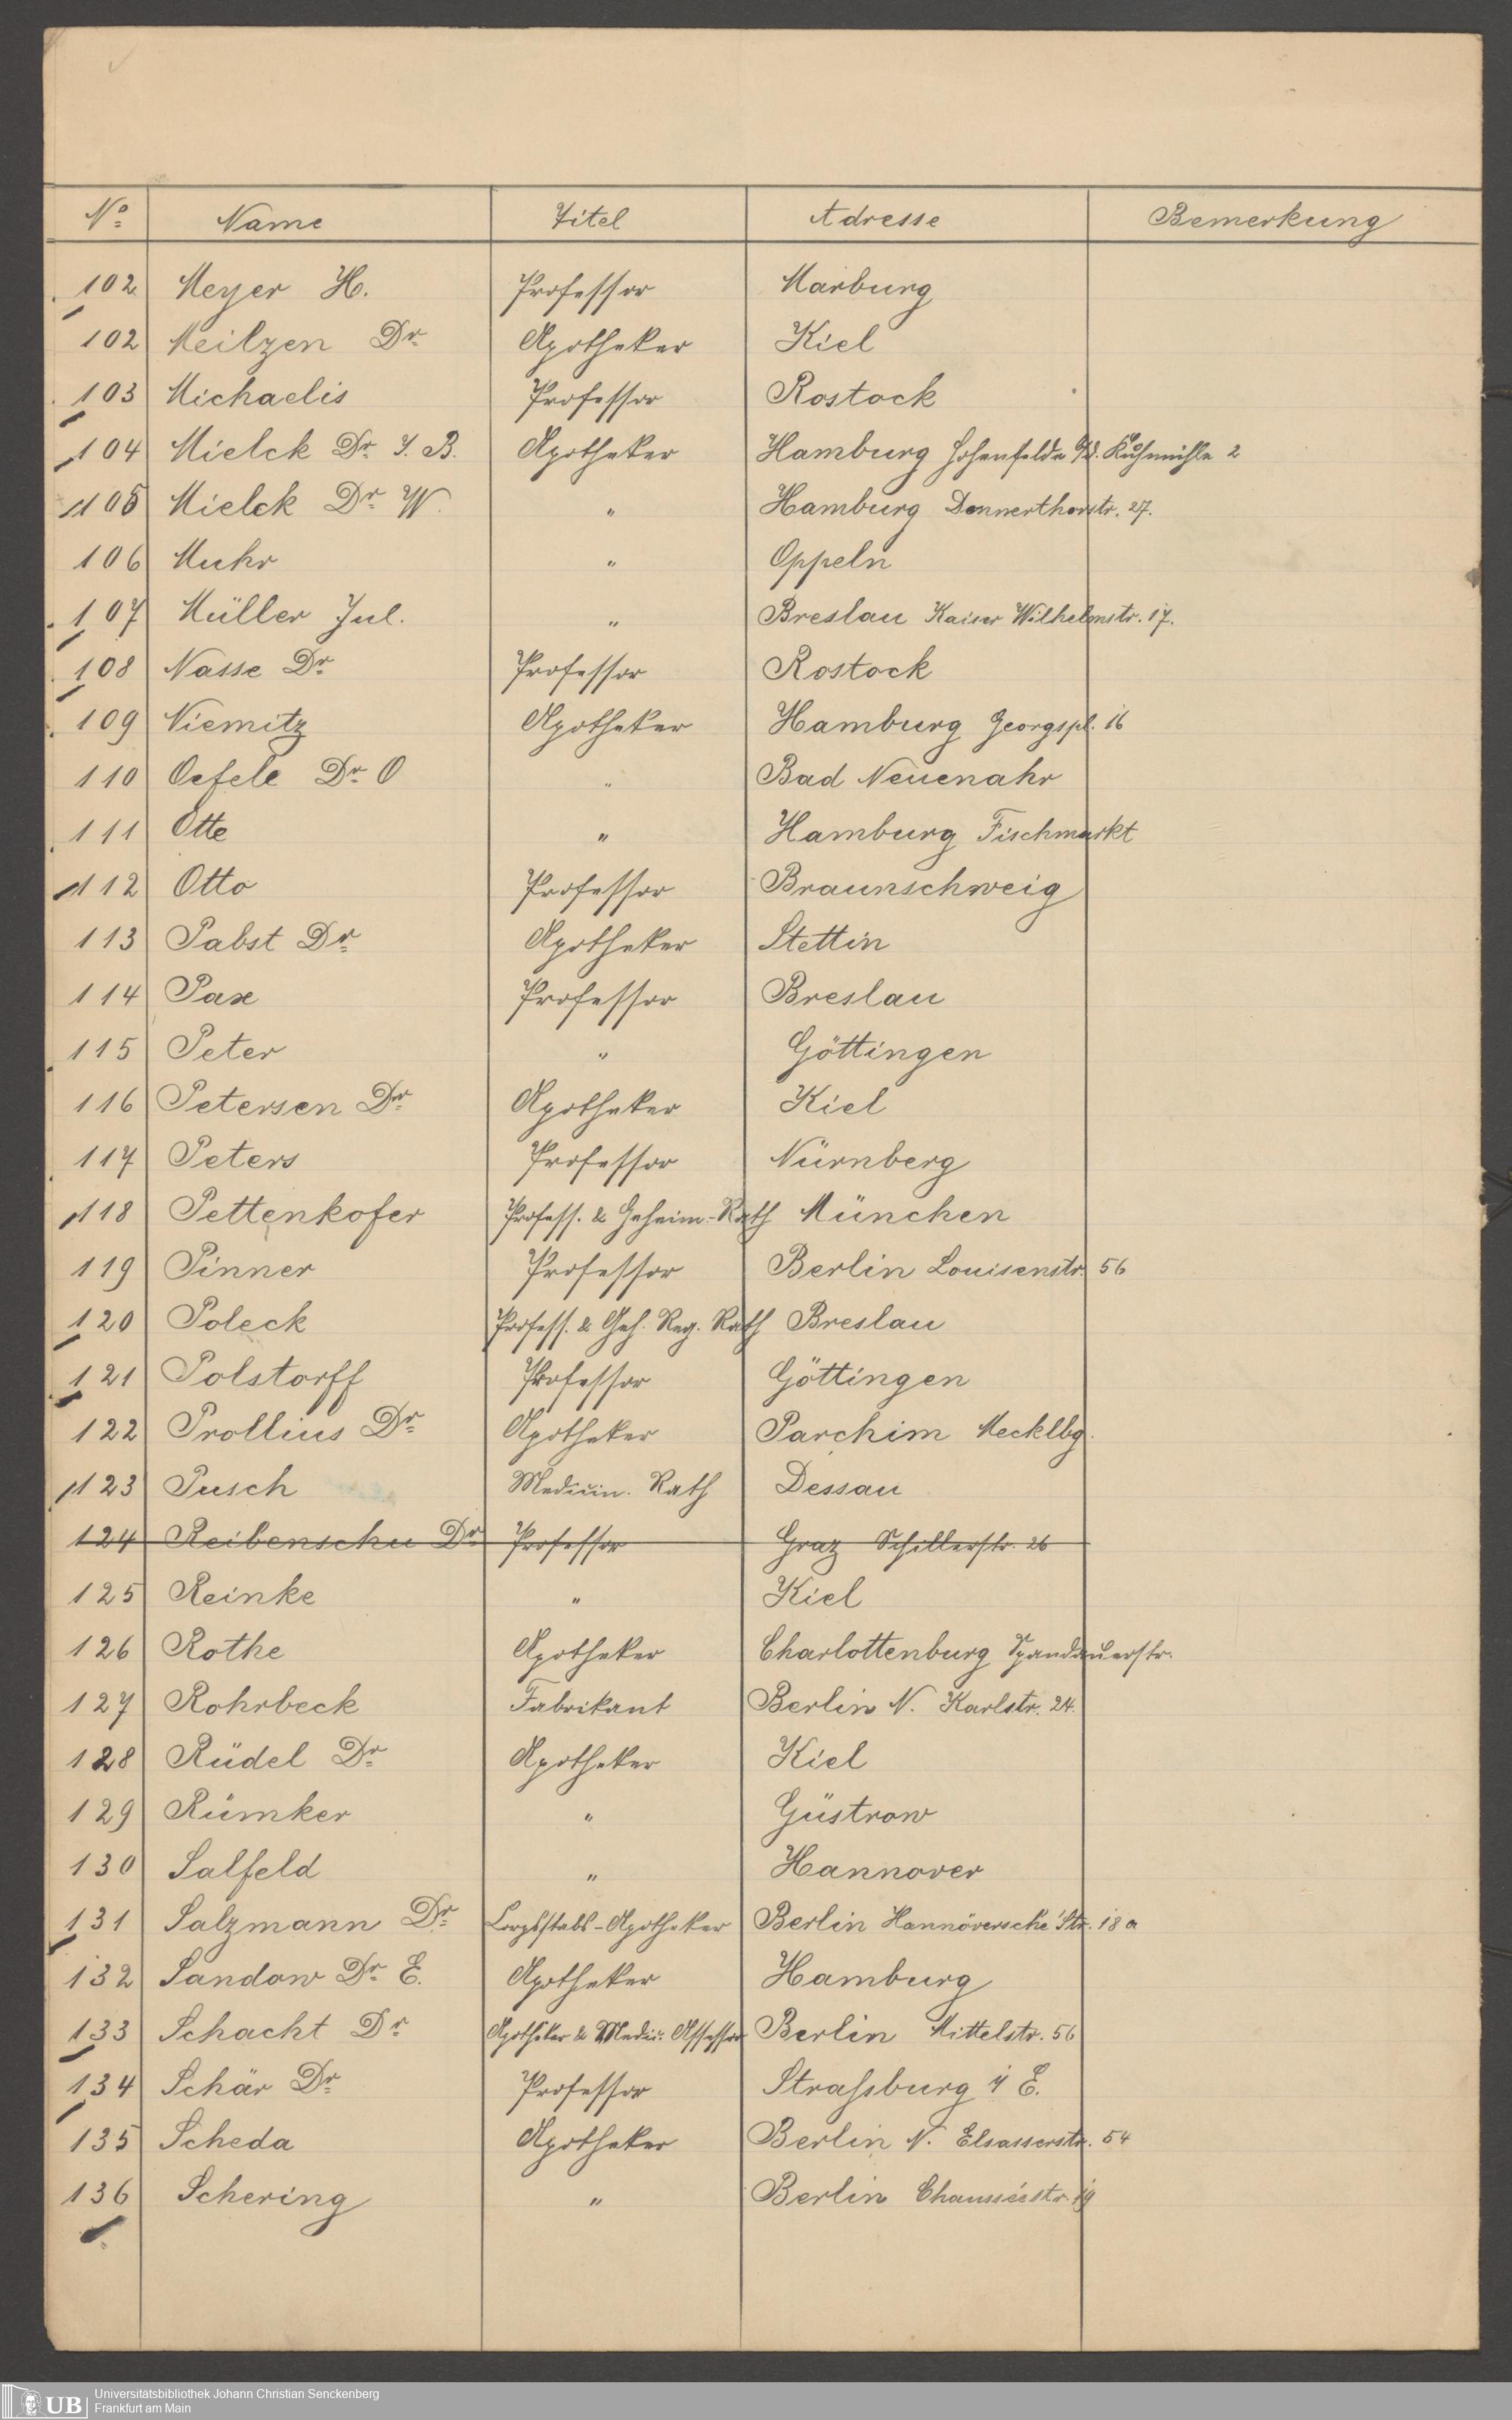 No Name Titel Adresse Bemerkung
102 Meyer H. Professor Marburg
102 Meitzen Dr Apotheker Kiel
103 Michaelis Professor Rostock
104 Mielck Dr. I. B. Apotheker Hamburg Hohenfelde a/d. Kuhmühle 2
105 Mielck Dr. W. " Hamburg Dammerthorstr. 27.
106 Muhr " Oppeln
107 Müller Jul. " Breslau Kaiser Wilhelmstr. 17.
108 Nasse Dr. Professor Rostock
109 Niemitz Apotheker Hamburg Georgspl. 16
110 Oefele Dr. O " Bad Neuenahr
111 Otte " Hamburg Fischmarkt
112 Otto Professor Braunschweig
113 Pabst Dr. Apotheker Stettin
114 Pax Professor Breslau
115 Peter " Göttingen
116 Petersen Dr. Apotheker Kiel
117 Peters Professor Nürnberg
118 Pettenkofer Profess. & Geheim-Rath München
119 Pinner Professor Berlin Louisenstr. 56
120 Poleck Profess. & Geh. Reg. Rath Breslau
121 Polstorff Professor Göttingen
122 Prollius Dr. Apotheker Parchim Mecklbg.
123 Pusch Medicin. Rath Dessau
124 Reibenschu Dr. Professor Graz Schillerstr. 26
125 Reinke " Kiel
126 Rothe Apotheker Charlottenburg Spandauerstr.
127 Rohrbeck Fabrikant Berlin N. Karlstr. 24.
128 Rüdel Dr. Apotheker Kiel
129 Rümker " Güstrow
130 Salfeld " Hannover
131 Salzmann Dr. Corpsstabs-Apotheker Berlin Hannöversche Str. 18 a
132 Sandow Dr. E. Apotheker Hamburg
133 Schacht Dr. Apotheker & Medic. Assessor Berlin Mittelstr. 56
134 Schär Dr. Professor Straſsburg i/ E.
135 Scheda Apotheker Berlin N. Elsasserstr. 54
136 Schering " Berlin Chausséestr. 19
UB
Universitätsbibliothek Johann Christian Senckenberg
Frankfurt am Main